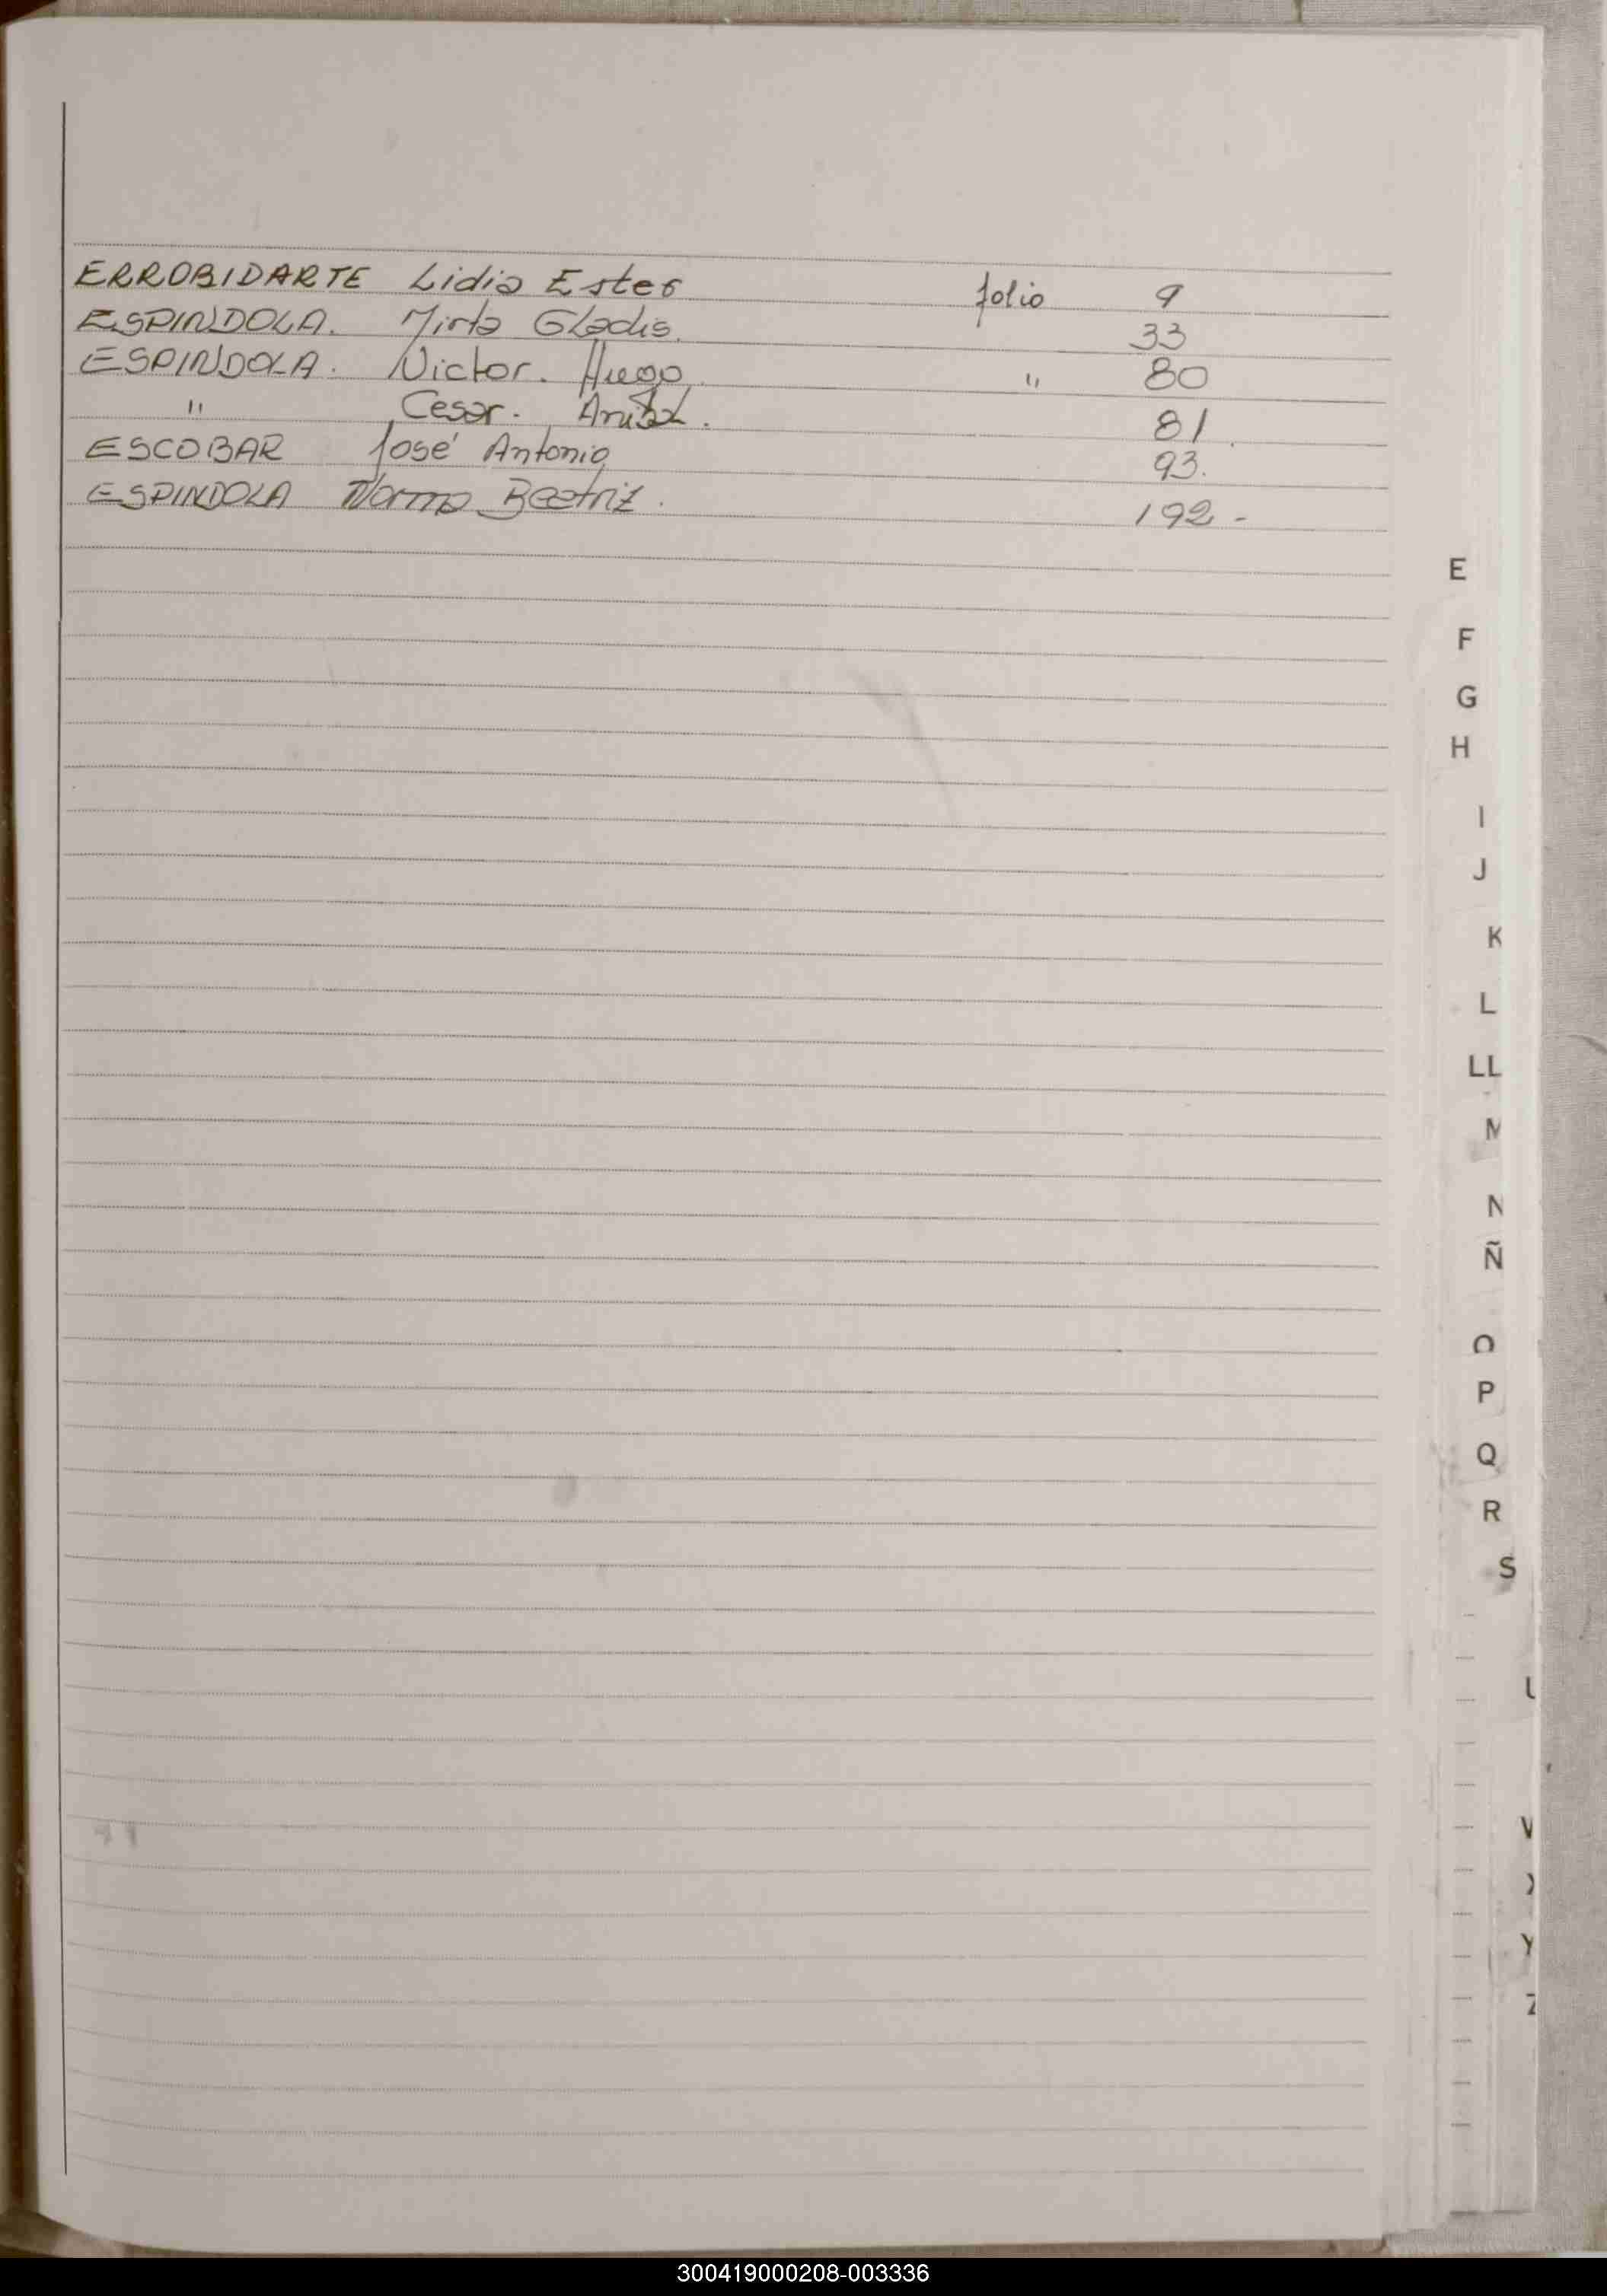 ERROBIDARTE Lidia Ester folio 9
ESPINDOLA. Mirta Gladis. 33
ESPINDOLA. Victor. Hugo. " 80
" Cesar. 81.
ESCOBAR José Antonio 93.
ESPINDOLA Norma Beatriz. 192-
E
F
G
H
I
J
K
L
LL
M
N
Ñ
O
P
Q
R
S
V
Y
Z
300419000208-003336